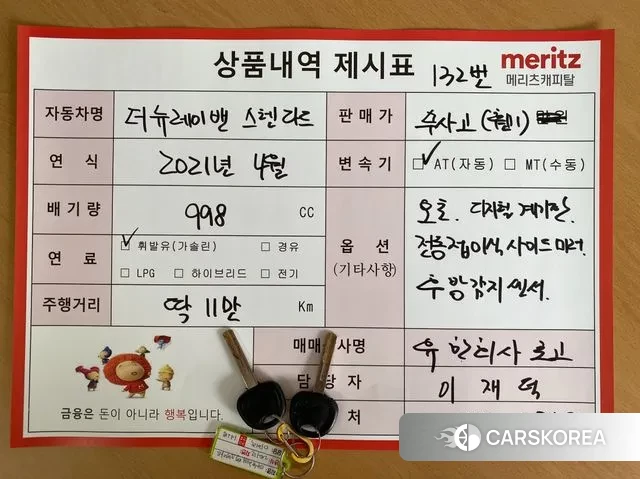 상품내역 제시표
132번
meritz
메리츠캐피탈
자동차명 더뉴레이밴 스탠다드
판매가 무사고
연 식 2021년 4월
변속기 AT(자동) MT(수동)
배기량 998 CC
옵 션 (기타사항)
오토. 디지털 계기판.
전동접이식 사이드미러.
후방감지 센서.
연 료 휘발유(가솔린) 경유
LPG 하이브리드 전기
주행거리 딱 11만 Km
매매 사명
담 당 자 이 재 덕
처
금융은 돈이 아니라 행복입니다.
CARSKOREA